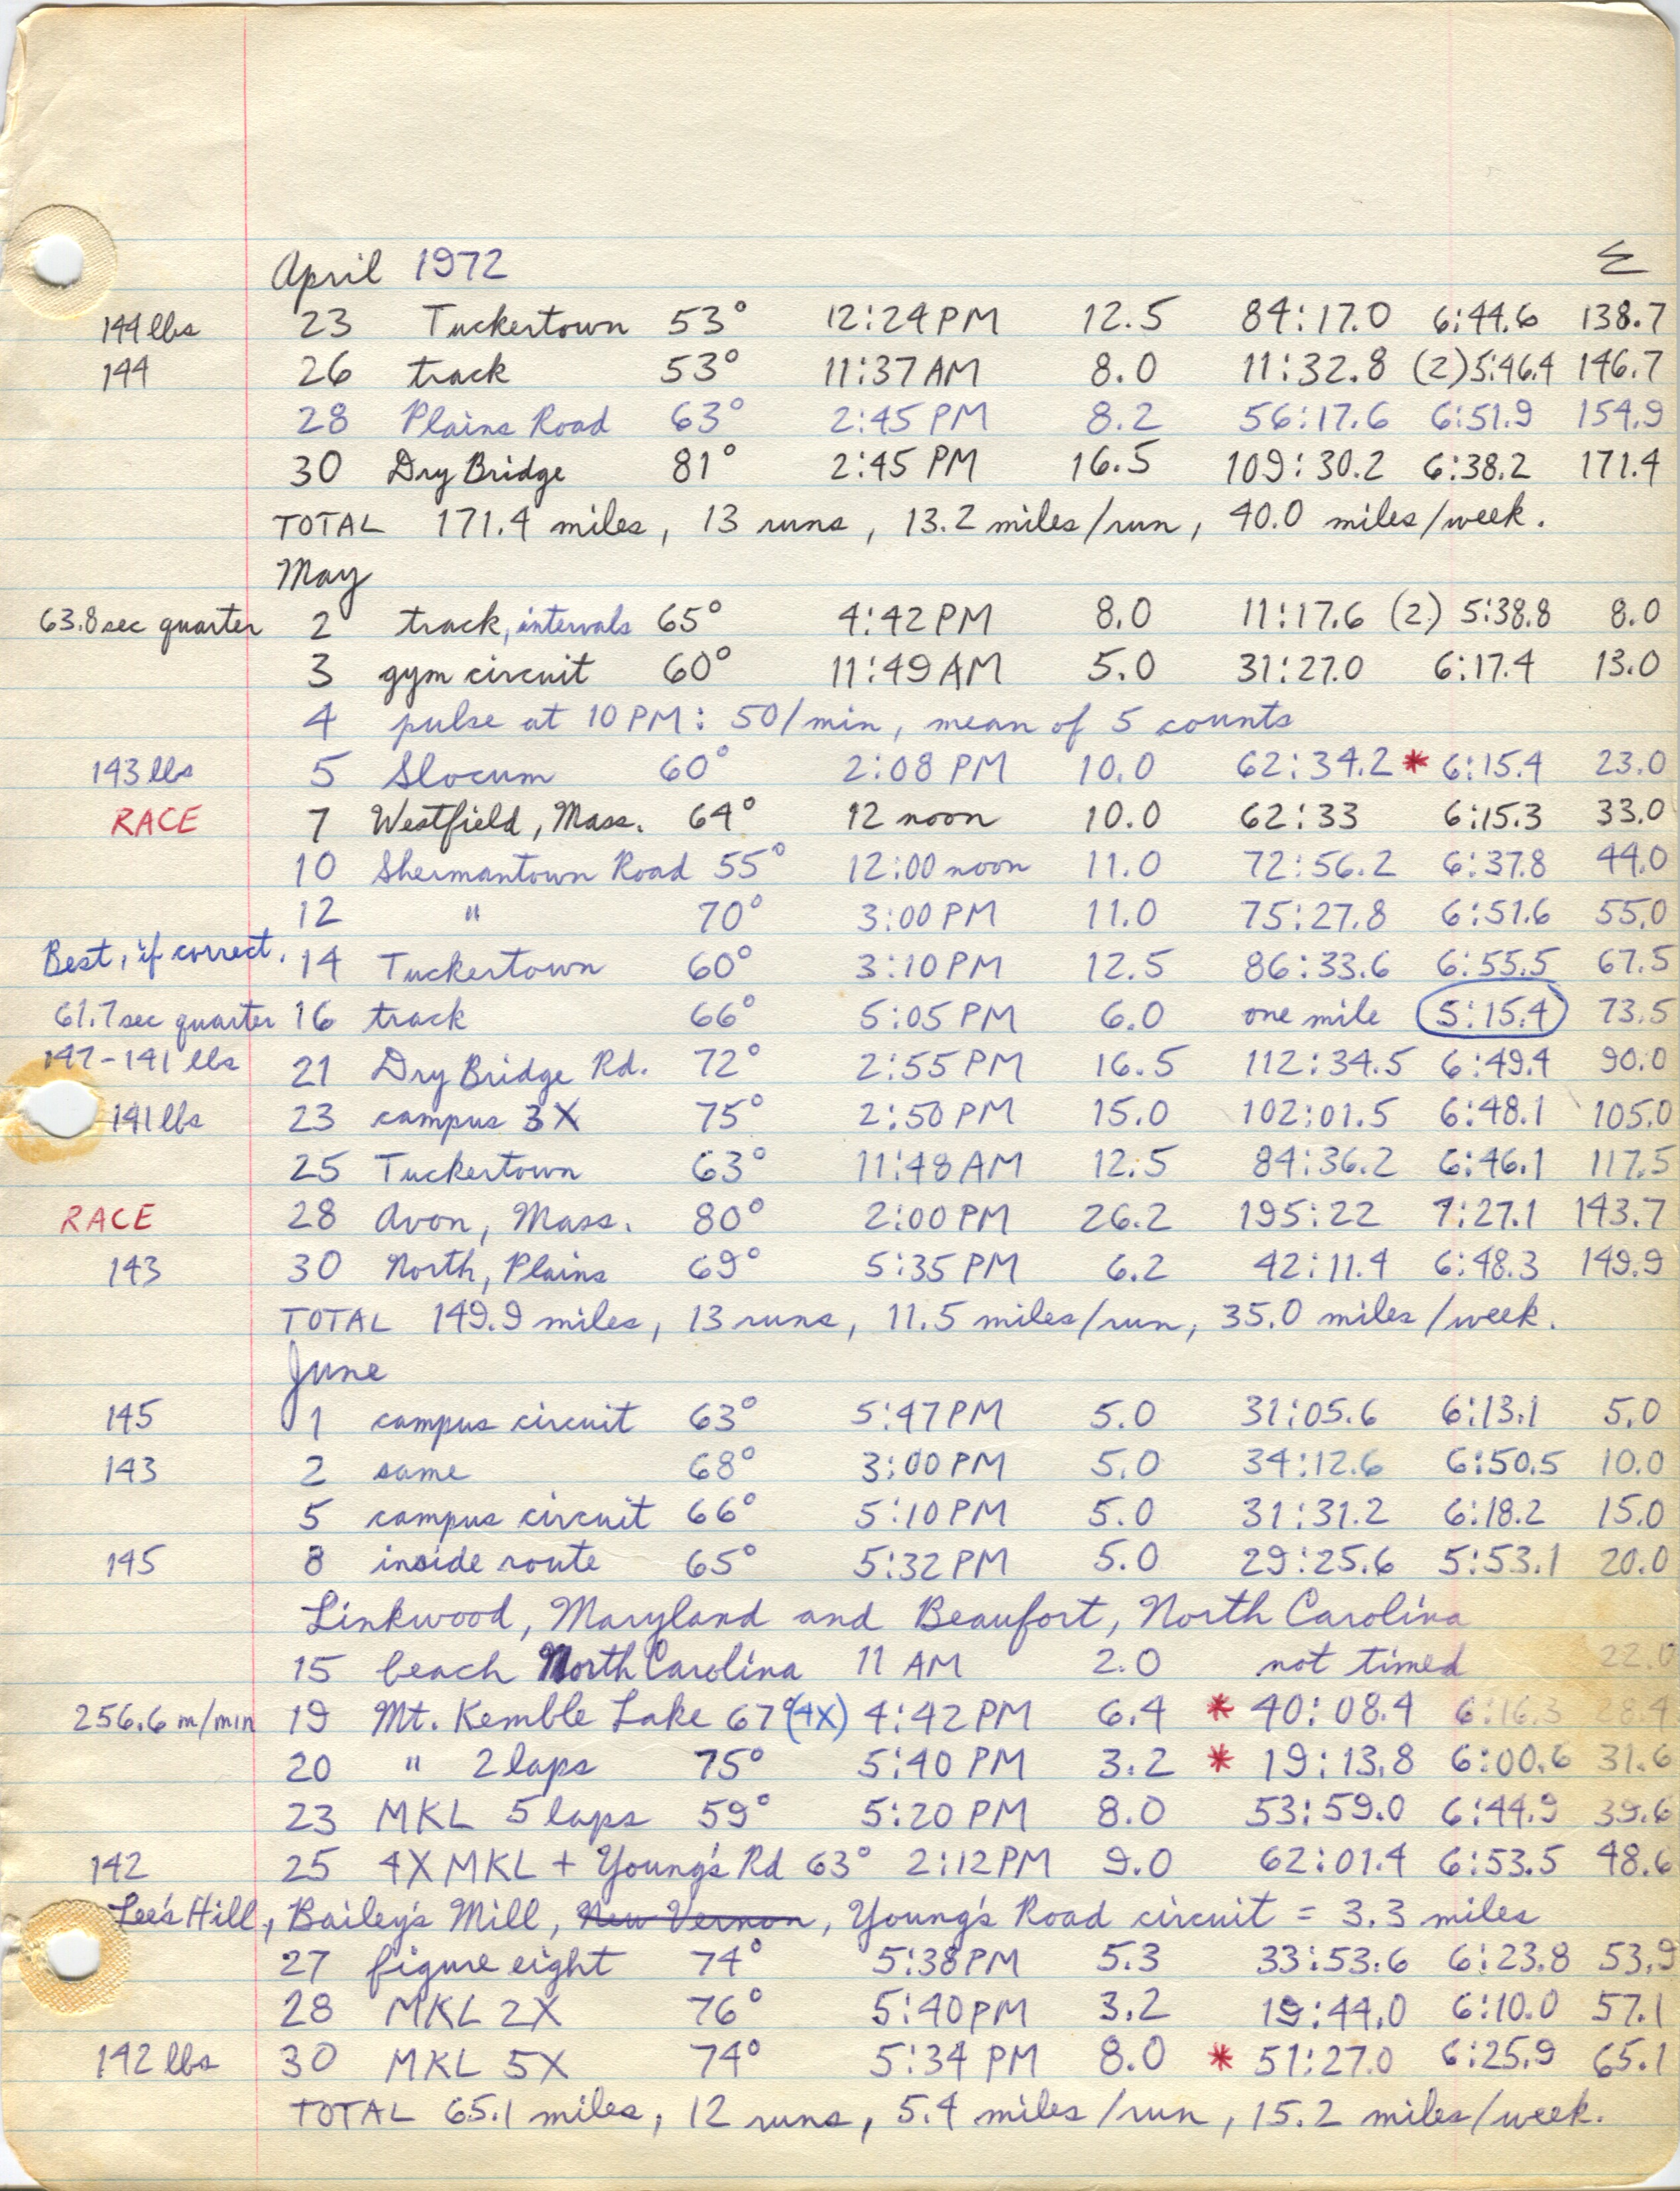 April 1972 Σ
144 lbs 23 Tuckertown 53° 12:24 PM 12.5 84:17.0 6:44.6 138.7
144 26 track 53° 11:37 AM 8.0 11:32.8 (2) 5:46.4 146.7
28 Plains Road 63° 2:45 PM 8.2 56:17.6 6:51.9 154.9
30 Dry Bridge 81° 2:45 PM 16.5 109:30.2 6:38.2 171.4
TOTAL 171.4 miles, 13 runs, 13.2 miles/run, 40.0 miles/week.
May
63.8 sec quarter 2 track, intervals 65° 4:42 PM 8.0 11:17.6 (2) 5:38.8 8.0
3 gym circuit 60° 11:49 AM 5.0 31:27.0 6:17.4 13.0
4 pulse at 10 PM: 50/min, mean of 5 counts
143 lbs 5 Slocum 60° 2:08 PM 10.0 62:34.2 * 6:15.4 23.0
RACE 7 Westfield, Mass. 64° 12 noon 10.0 62:33 6:15.3 33.0
10 Shermantown Road 55° 12:00 noon 11.0 72:56.2 6:37.8 44.0
12 " 70° 3:00 PM 11.0 75:27.8 6:51.6 55.0
Best, if correct. 14 Tuckertown 60° 3:10 PM 12.5 86:33.6 6:55.5 67.5
61.7 sec quarter 16 track 66° 5:05 PM 6.0 one mile 5:15.4 73.5
147-141 lbs 21 Dry Bridge Rd. 72° 2:55 PM 16.5 112:34.5 6:49.4 90.0
141 lbs 23 campus 3X 75° 2:50 PM 15.0 102:01.5 6:48.1 105.0
25 Tuckertown 63° 11:48 AM 12.5 84:36.2 6:46.1 117.5
RACE 28 Avon, Mass. 80° 2:00 PM 26.2 195:22 7:27.1 143.7
143 30 North, Plains 69° 5:35 PM 6.2 42:11.4 6:48.3 149.9
TOTAL 149.9 miles, 13 runs, 11.5 miles/run, 35.0 miles/week.
June
145 1 campus circuit 63° 5:47 PM 5.0 31:05.6 6:13.1 5.0
143 2 same 68° 3:00 PM 5.0 34:12.6 6:50.5 10.0
5 campus circuit 66° 5:10 PM 5.0 31:31.2 6:18.2 15.0
145 8 inside route 65° 5:32 PM 5.0 29:25.6 5:53.1 20.0
Linkwood, Maryland and Beaufort, North Carolina
15 beach North Carolina 11 AM 2.0 not timed 22.0
256.6 m/min 19 Mt. Kemble Lake 67° (4X) 4:42 PM 6.4 * 40:08.4 6:16.3 28.4
20 " 2 laps 75° 5:40 PM 3.2 * 19:13.8 6:00.6 31.6
23 MKL 5 laps 59° 5:20 PM 8.0 53:59.0 6:44.9 39.6
142 25 4X MKL + Young's Rd 63° 2:12 PM 9.0 62:01.4 6:53.5 48.6
Lee's Hill, Bailey's Mill, New Vernon, Young's Road circuit = 3.3 miles
27 figure eight 74° 5:38 PM 5.3 33:53.6 6:23.8 53.9
28 MKL 2X 76° 5:40 PM 3.2 19:44.0 6:10.0 57.1
142 lbs 30 MKL 5X 74° 5:34 PM 8.0 * 51:27.0 6:25.9 65.1
TOTAL 65.1 miles, 12 runs, 5.4 miles/run, 15.2 miles/week.